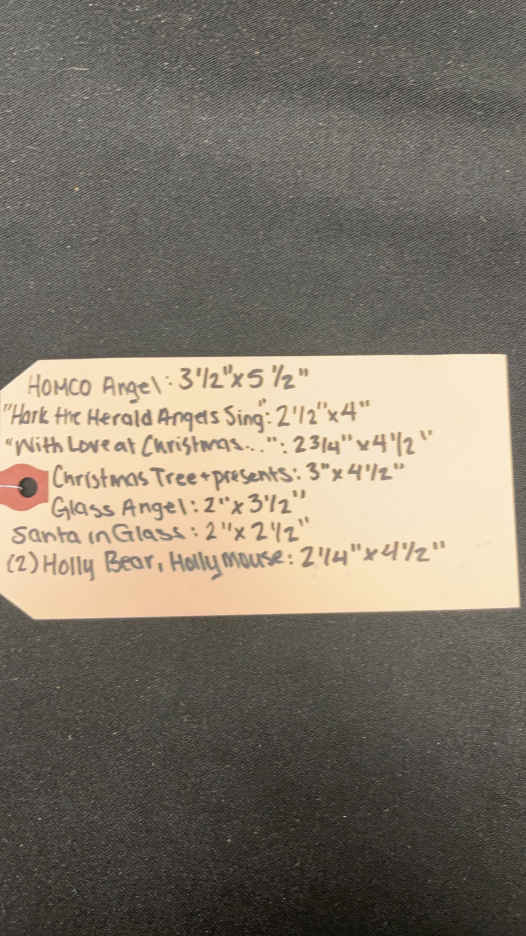 HOMCO Angel: 3 1/2" x 5 1/2"
"Hark the Herald Angels Sing": 2 1/2" x 4"
"With Love at Christmas...": 2 3/4" x 4 1/2"
Christmas Tree + presents: 3" x 4 1/2"
Glass Angel: 2" x 3 1/2"
Santa in Glass: 2" x 2 1/2"
(2) Holly Bear, Holly mouse: 2 1/4" x 4 1/2"